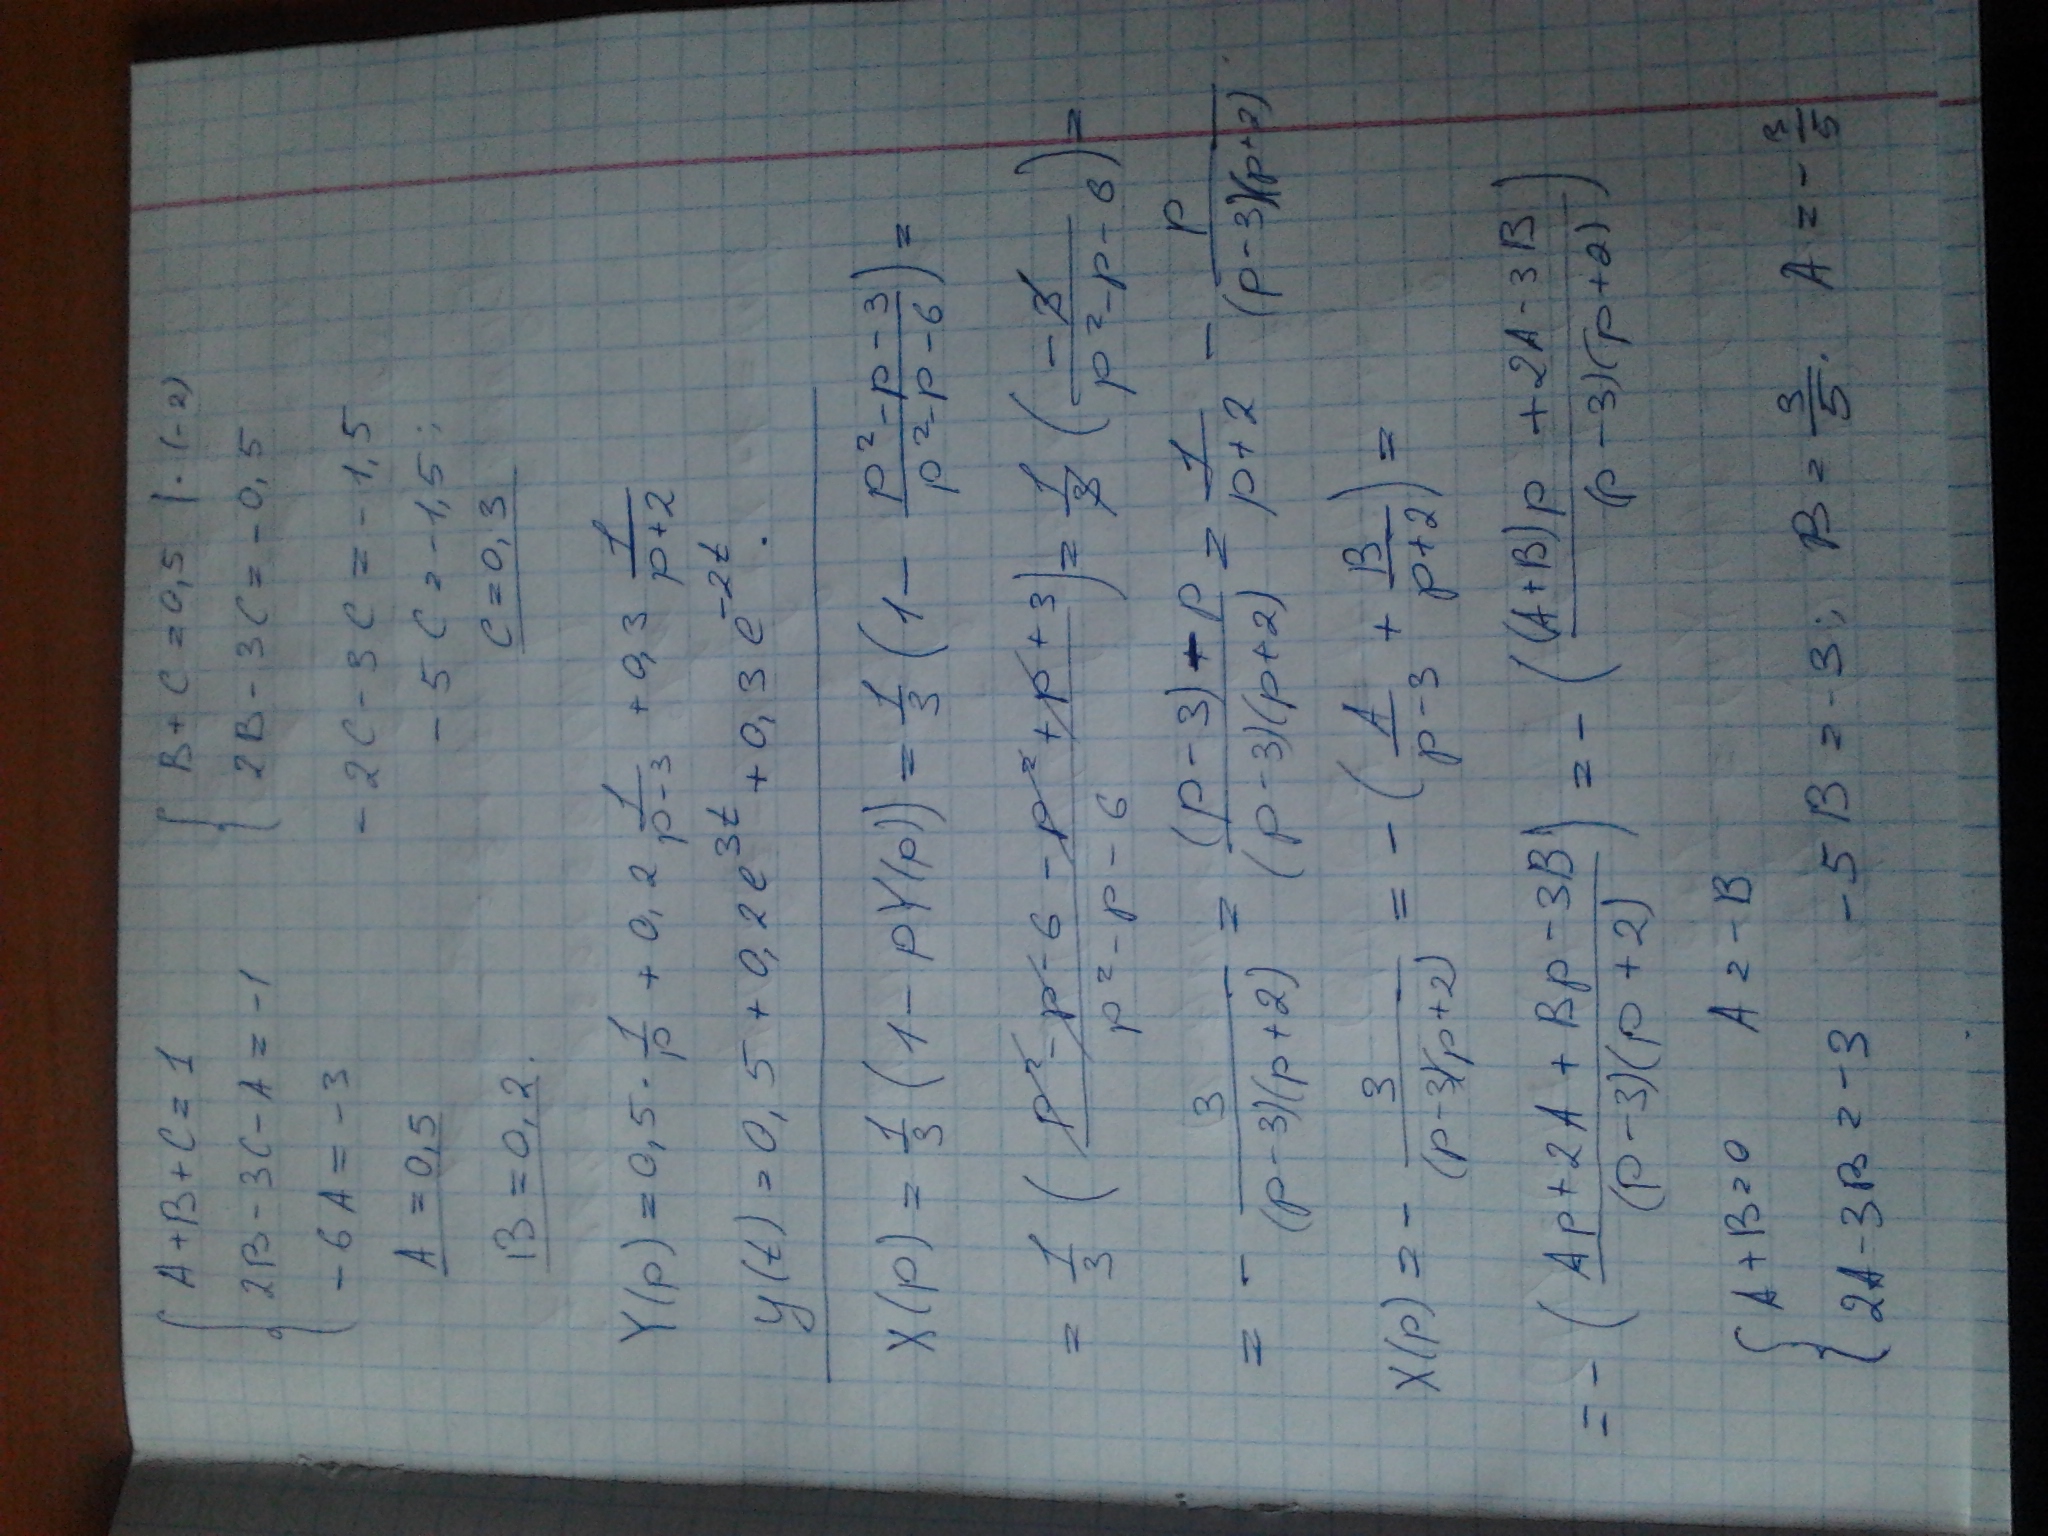 A+B+C=1
2B-3C-A=-1
-6A=-3
A=0,5
B=0,2.
B+C=0,5 |·(-2)
2B-3C=-0,5
-2C-3C=-1,5
-5C=-1,5;
C=0,3
Y(p)=0,5·1/p+0,2 1/(p-3)+0,3 1/(p+2)
y(t)=0,5+0,2e^{3t}+0,3e^{-2t}.
X(p)=1/3(1-pY(p))=1/3(1-(p²-p-3)/(p²-p-6))=
=1/3((p²-p-6-p²+p+3)/(p²-p-6))=1/3(-3/(p²-p-6))=
=-3/((p-3)(p+2))=((p-3)-p)/((p-3)(p+2))=1/(p+2)-p/((p-3)(p+2))
X(p)=-3/((p-3)(p+2))=-(A/(p-3)+B/(p+2))=
=-((Ap+2A+Bp-3B)/((p-3)(p+2)))=-(((A+B)p+2A-3B)/((p-3)(p+2)))
A+B=0 A=-B
2A-3B=-3 -5B=-3; B=3/5. A=-3/5